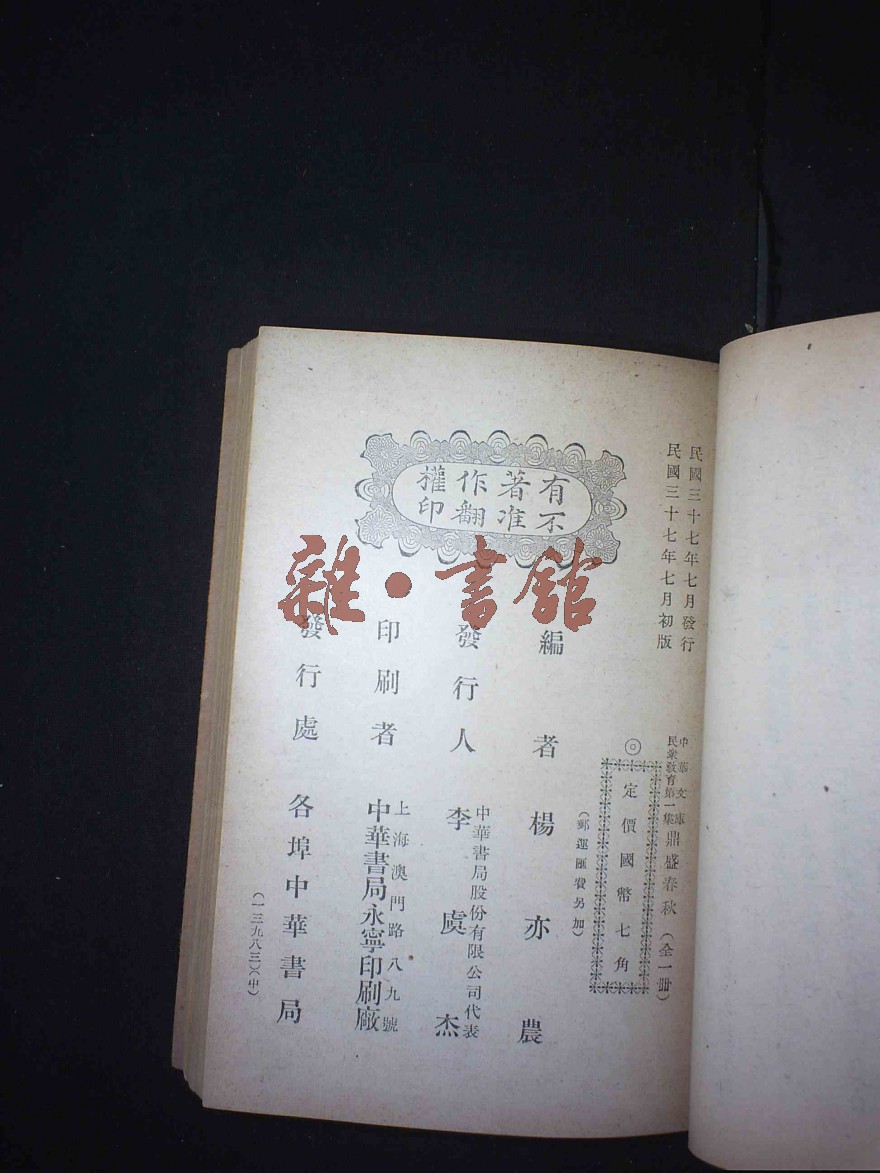 民國三十七年七月發行
民國三十七年七月初版
中華文庫
民衆教育第一集
鼎盛春秋(全一冊)
◎定價國幣七角
(郵運匯費另加)
編者 楊亦農
發行人 李虞杰
中華書局股份有限公司代表
印刷者 中華書局永寧印刷廠
上海澳門路八九號
發行處 各埠中華書局
(一三九八三)(中)
有著作權
不准翻印
雜·書館